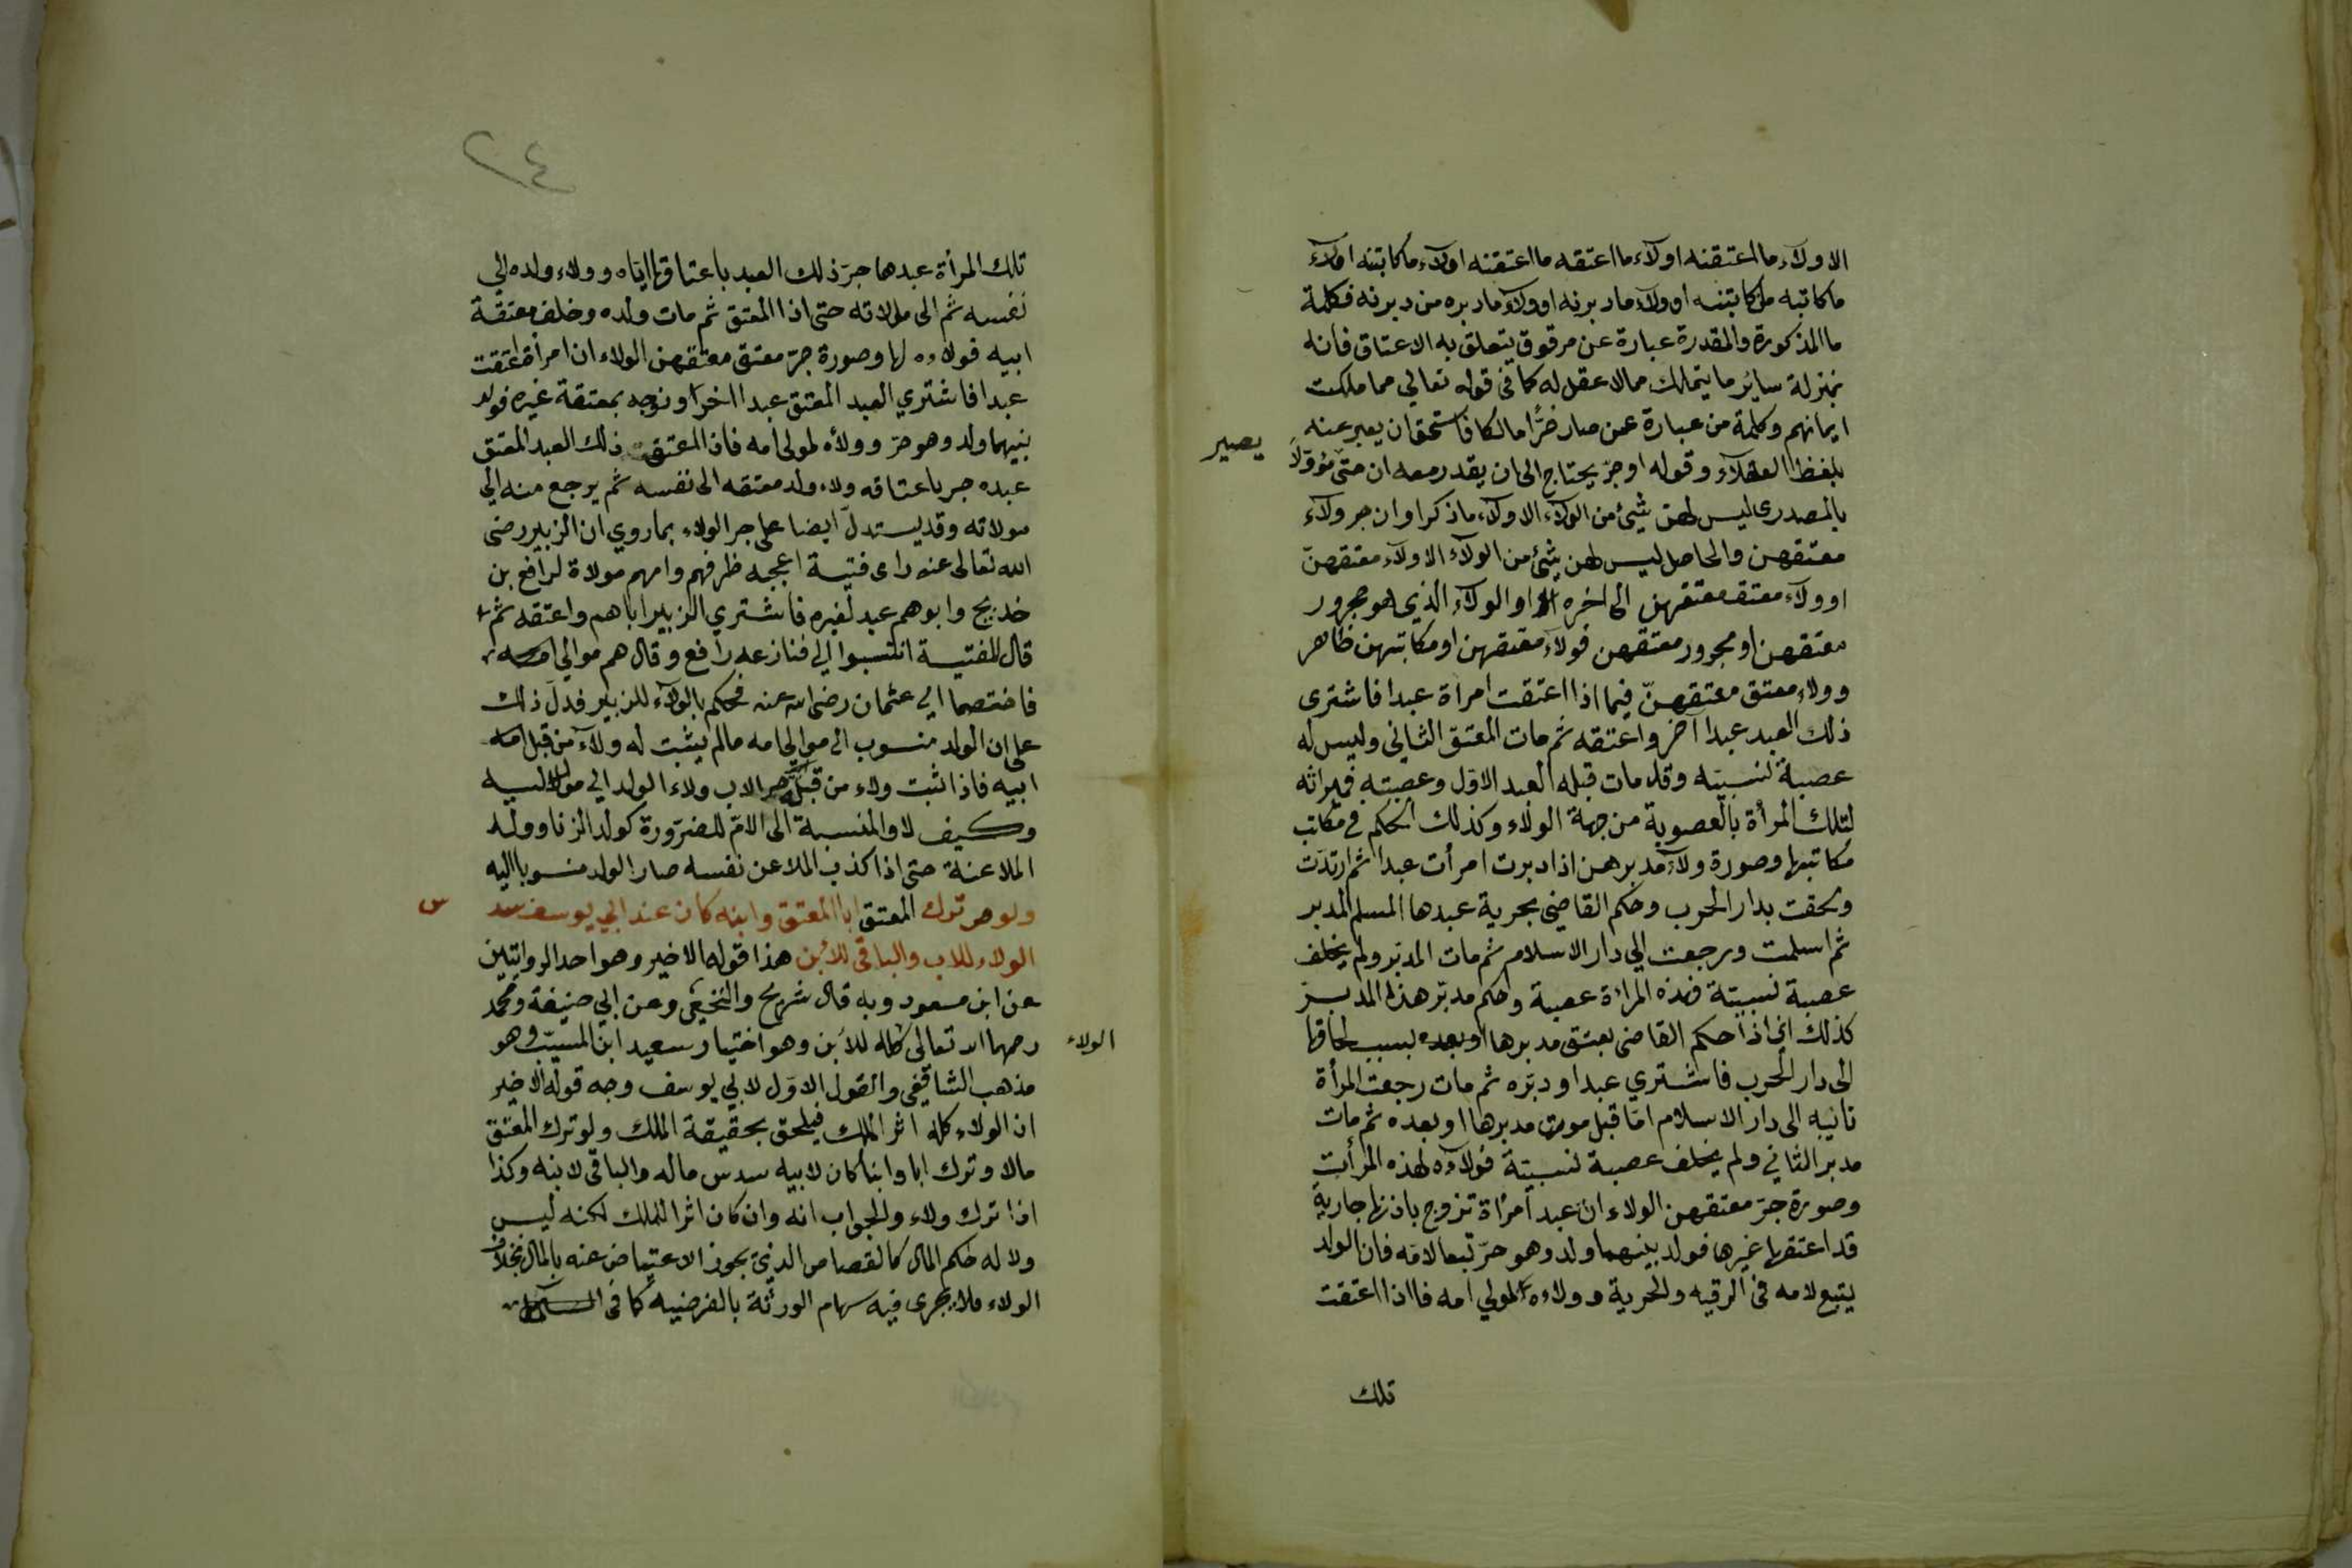 الا ولآء ما اعتقنه او لآء ما اعتقه ما اعتقنه اولآء ما كاتبنه اولآء
ما كاتبه من كاتبنه او ولآء ما دبرنه او ولآء ما دبره من دبرنه فكلمة
ما المذكورة والمقدرة عبارة عن مرقوق يتعلق به الاعتاق فانه
بمنزلة سائر ما يتملك مما لا عقل له كما في قوله تعالي مما ملكت
ايمانهم وكلمة من عبارة عمن صار حرًّا مالكا فاستحق ان يعبر عنه
بلفظ العقلآء وقوله او جرّ يحتاج الى ان يقدر معه ان حتى مؤوّلاً
يصير
بالمصدرى ليس لهن شيئ من الولآء الا ولآء ما ذكر او ان جر ولآء
معتقهن والحاصل ليس لهن شيئ من الولآء الا ولآء معتقهنّ
او ولآء معتق معتقهن الى اخره او الولآء الذي هو مجرور
معتقهن او مجرور معتقهن فولآء معتقهن او مكاتبهن ظاهر
وولاء معتق معتقهنّ فيما اذا اعتقت امراة عبدا فاشترى
ذلك العبد عبدا آخر واعتقه ثم مات المعتق الثاني وليس له
عصبة نسبيّه وقد مات قبله العبد الاوّل وعصبته فميراثه
لتلك المرأة بالعصوبة من جهة الولاء وكذلك الحكم في مكاتب
مكاتبها وصورة ولآء مدبرهمن اذا دبرت امرأت عبدا ثم ارتدّت
ولحقت بدار الحرب وحكم القاضي بحرية عبدها المسلم المدبر
ثم اسلمت ورجعت الي دار الاسلام ثم مات المدبّر ولم يخلف
عصبة نسبيّة فهذه المرأة عصبة وحكم مدبّر هذا المدبرّ
كذلك اي اذا حكم القاضي بعتق مدبرها او بعده بسبب لحاقها
الى دار الحرب فاشتري عبدا ودبّره ثم مات رجعت المرأة
تانيه الى دار الاسلام امّا قبل موت مدبرها او بعده ثم مات
مدبر الثاني ولم يخلف عصبة نسبيّة فولآؤه لهذه المرأت
وصورة جرّ معتقهن الولاء ان عبد امرأة تزوج باذنها جارية
قد اعتقها غيرها فولد بينهما ولد وهو حرّ تبعا لامّه فان الولد
يتبع لامه في الرقيه والحرية وولاءه لمولي امه فاذا اعتقت
تلك
٢٤
تلك المرأة عبدها جرّ ذلك العبد باعتاقها ايّاه وولاء ولده الي
نفسه ثم الى مولاته حتى اذا المعتق ثم مات ولده وخلف معتقة
ابيه فولاءه لها وصورة جرّ معتق معتقهن الولاء ان امرأة اعتقت
عبدا فاشتري العبد المعتق عبدا اخر او زوجه بمعتقة غيره فولد
بنيهما ولد وهو حرّ وولأه لمولى امه فاذا اعتق ذلك العبد المعتق
عبده جر باعتاقه ولاء ولد معتقه الى نفسه ثم يرجع منه الي
مولاته وقد يستدلّ ايضا على جر الولاء بما روي ان الزبير رضي
الله تعالى عنه راى فتية اعجبه ظرفهم وامهم مولاة لرافع بن
خديج وابوهم عبد لغيره فاشتري الزبير اباهم واعتقه ثم
قال للفتية انتسبوا الي فنازعه رافع وقال هم موالي
فاختصما الي عثمان رضي الله عنه فحكم بالولآء للزبير فدلّ ذلك
على ان الولد منسوب الى موالي امه ما لم يثبت له ولآء من قبل
ابيه فاذا ثبت ولاء من قبله جر الاب ولاء الولد الي
وكيف لا والمنسبة الى الامّ للضرورة كولد الزنا وولد
الملاعنة حتى اذا كذب الملاعن نفسه صار الولد منسوبا اليه
ولو ترك المعتق ابا المعتق وابنه كان عند ابي يوسف سد
س
الولاء للاب والباقي للأبن هذا قوله الاخير وهو احد الروايتين
عن ابن مسعود وبه قال شريح والنخعي وعن ابي حنيفة ومحمد
رحمهما الله تعالى كله للأبن وهو اختيار سعيد ابن المسيّب وهو
الولاء
مذهب الشافعي والقول الاوّل لابي يوسف وجه قوله الاخير
ان الولاء كله اثر الملك فيلحق بحقيقة الملك ولو ترك المعتق
مالا وترك ابا وابنا كان لابيه سدس ماله والباقي لابنه وكذا
اذا ترك ولاء والجواب انه وان كان اثرا للملك لكنه ليس
ولا له حكم المال كالقصاص الذي يجوز الاعتياض عنه بالمال بخلاف
الولاء فلا يجري فيه سهام الورثة بالفرضيه كما في